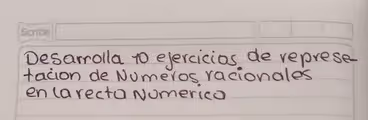 Scribe
Desarrolla 10 ejercicios de represe-
tacion de Numeros racionales
en la recta Numerico